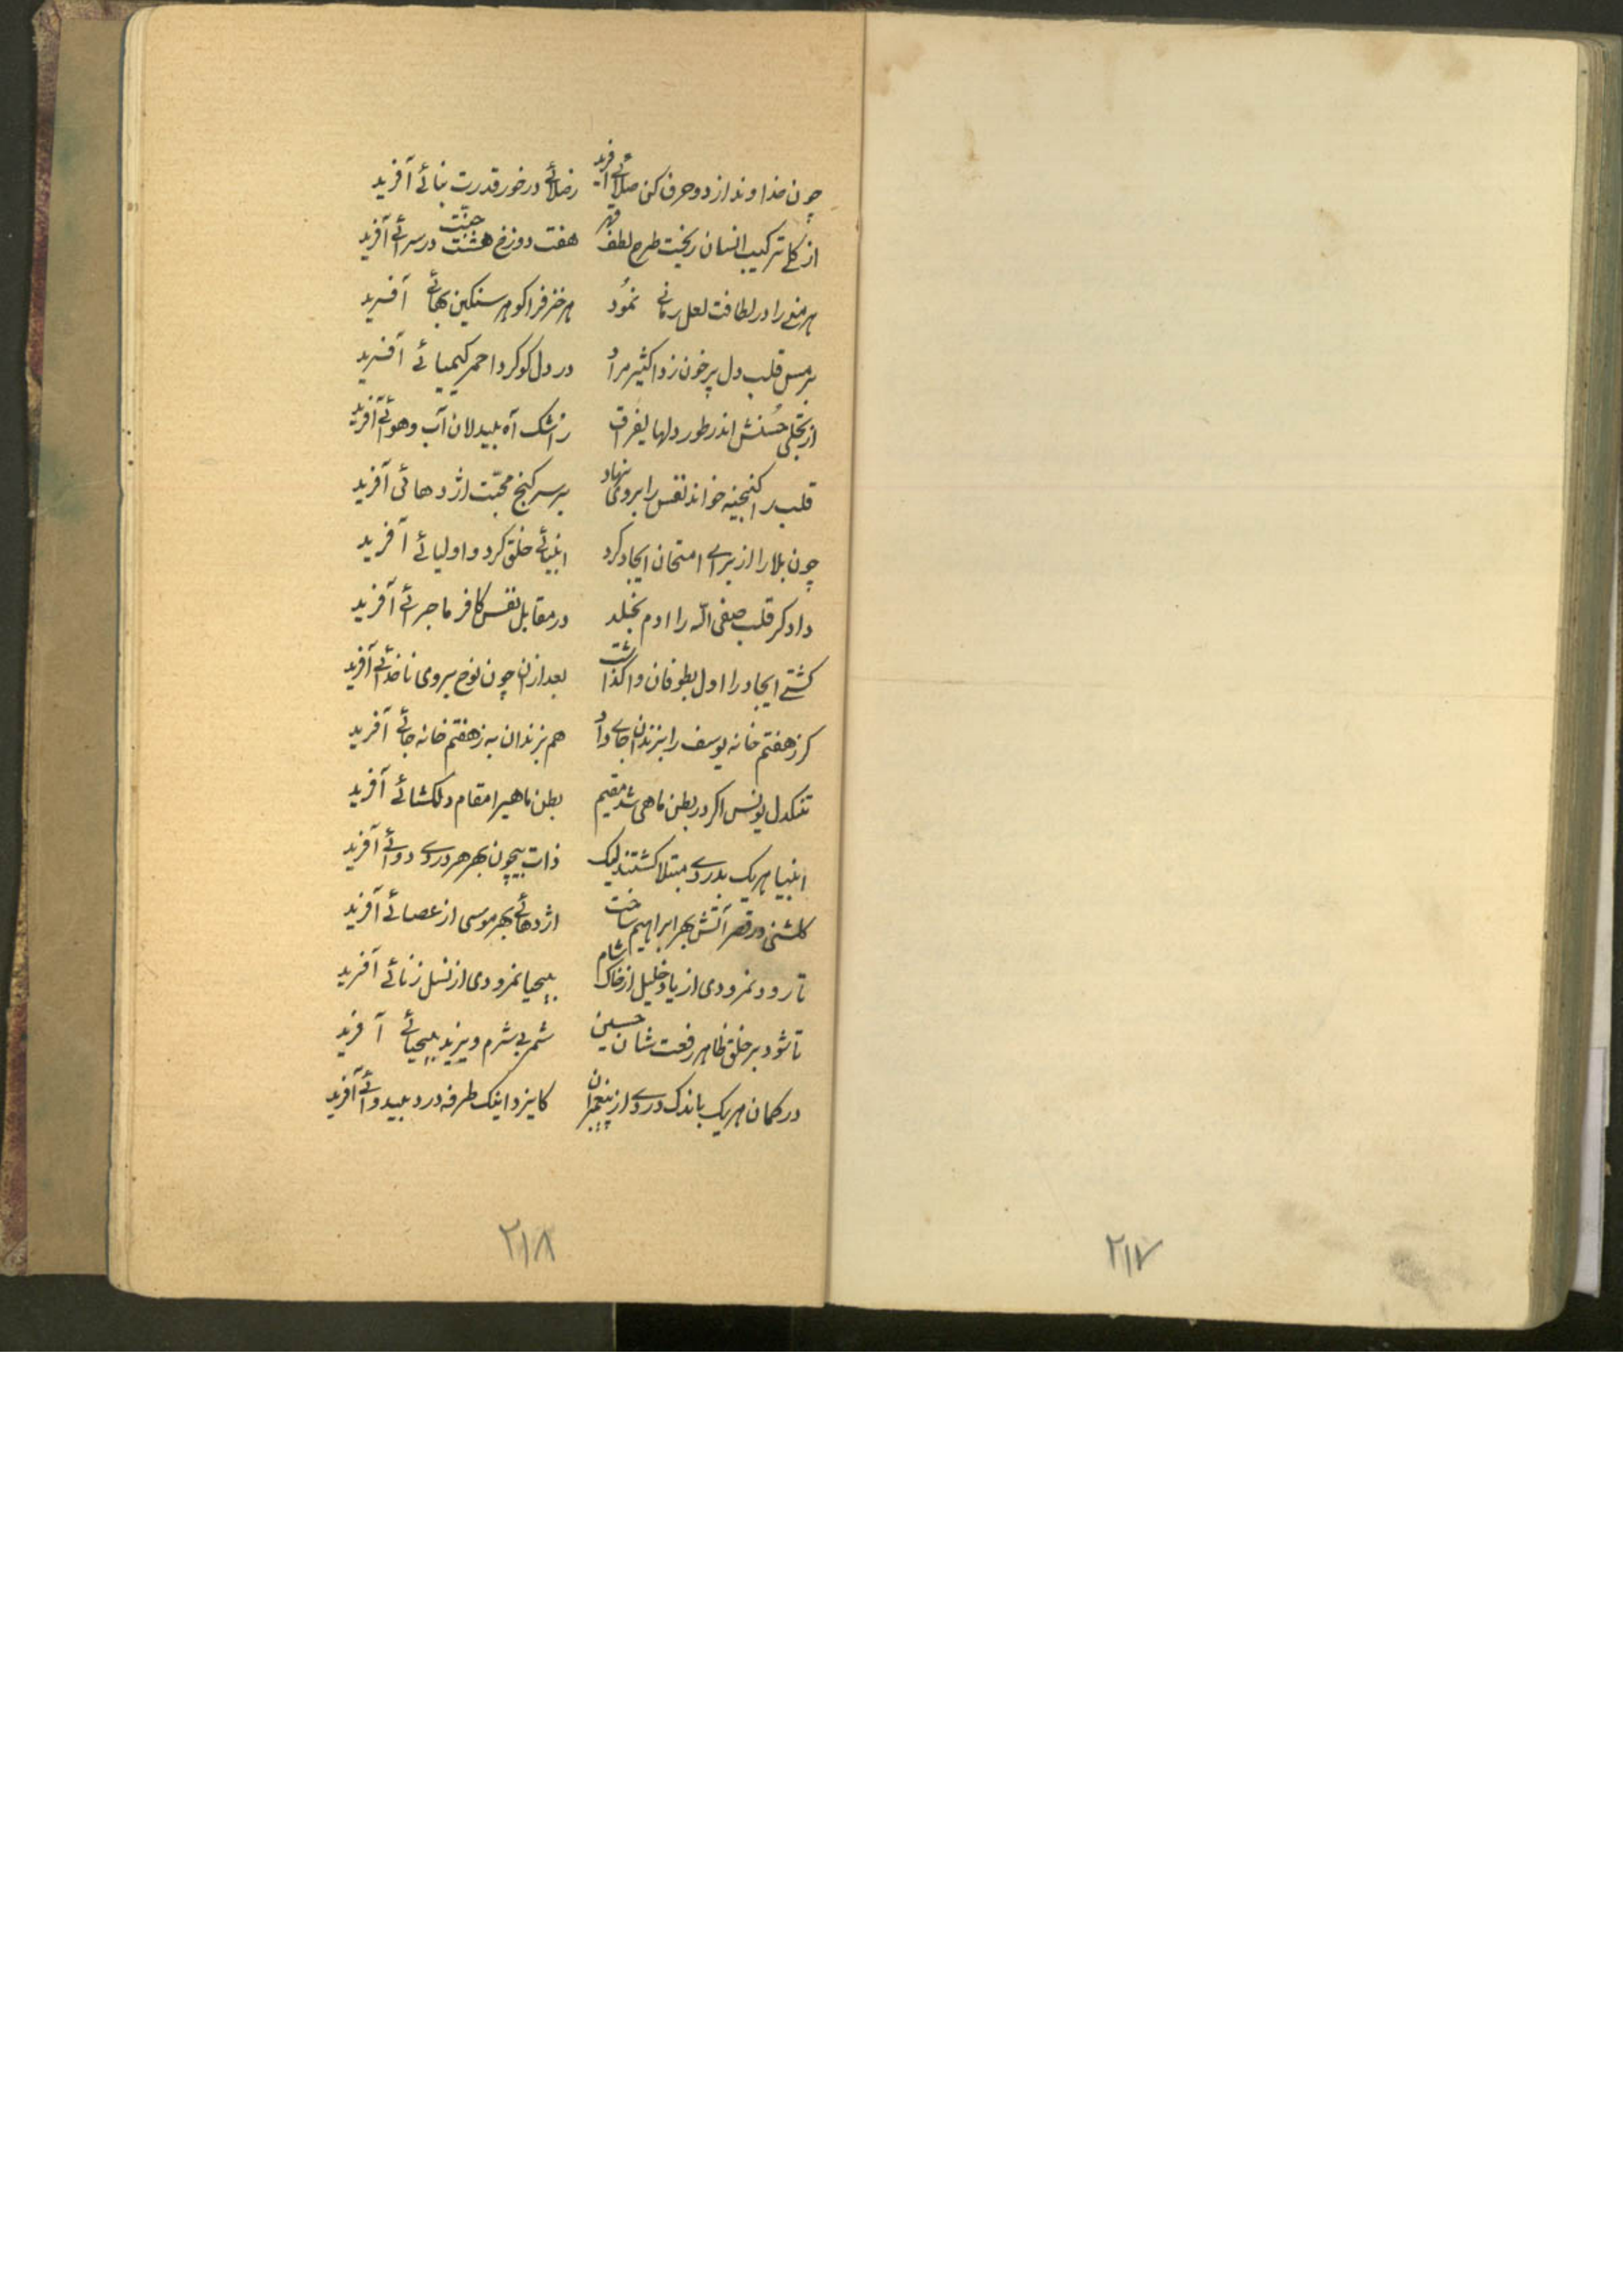 چون خداوند از دو حرف کن صلائے آفرید رضائے در خور قدرت بنائے آفرید
از کلے ترکیب انسان ریخت طرح لطف قهر هفت دوزخ هشت جنّت در سرائے آفرید
هر منے را در لطافت لعل رمانے نمود هر خزفرا کوهر سنکین بهائے آفرید
بر مس قلب دل پر خون زد اکثیر مراد در دل کوکرد احمر کیمیائے آفرید
از تجلی حُسنش اندر طور دلها یفرق ز اشک آه بیدلان آب و هوائے آفرید
قلب را کنجینه خواند نفس را بروی نهاد بر سر کنج محبّت اژدهائی آفرید
چون بلا را از براے امتحان ایجاد کرد انبیائے خلق کرد و اولیائے آفرید
داد کر قلب صفی الله را ادم بخلد در مقابل نفس کافر ماجرائے آفرید
کشتے ایجاد را اول بطوفان واکذاشت بعد ازان چون نوح بروی ناخدائے آفرید
کر ز هفتم خانه یوسف را بزندان جاے داد هم بزندان به ز هفتم خانه جائے آفرید
تنکدل یونس اکر در بطن ماهی شد مقیم بطن ماهیرا مقام دلکشائے آفرید
انبیا هر یک بدردے مبتلا کشتند لیک ذات بیچون بهر هر دردے دوائے آفرید
کلشنی در قعر آتش بهر ابراهیم ساخت اژدهائے بهر موسی از عصائے آفرید
تا رود نمرودی از یاد خلیل از خاک شام بیحیا نمرودی از نسل زنائے آفرید
تا شود بر خلق ظاهر رفعت شان حسین شمر بی شرم و یزید بیحیائے آفرید
در کمان هر یک باندک دردے از پیغمبران کایزد اینک طرفه درد بیدوائے آفرید
۲۱۸
۲۱۷